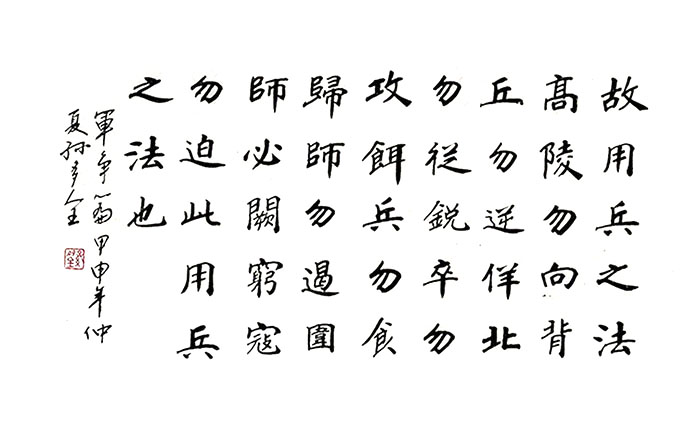 故用兵之法
髙陵勿向背
丘勿逆佯北
勿從鋭卒勿
攻餌兵勿食
歸師勿遏圍
師必闕窮寇
勿迫此用兵
之法也
軍争篇甲申年仲
夏孙多全